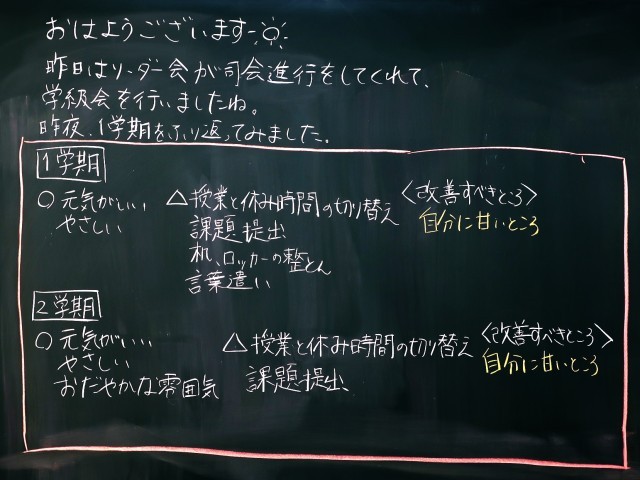 おはようございます
昨日はリーダー会が司会進行をしてくれて、
学級会を行いましたね。
昨夜、1学期をふり返ってみました。
1学期
○元気がいい △授業と休み時間の切り替え 〈改善すべきところ〉
やさしい 課題提出 自分に甘いところ
机、ロッカーの整とん
言葉遣い
2学期
○元気がいい △授業と休み時間の切り替え 〈改善すべきところ〉
やさしい 課題提出 自分に甘いところ
おだやかな雰囲気